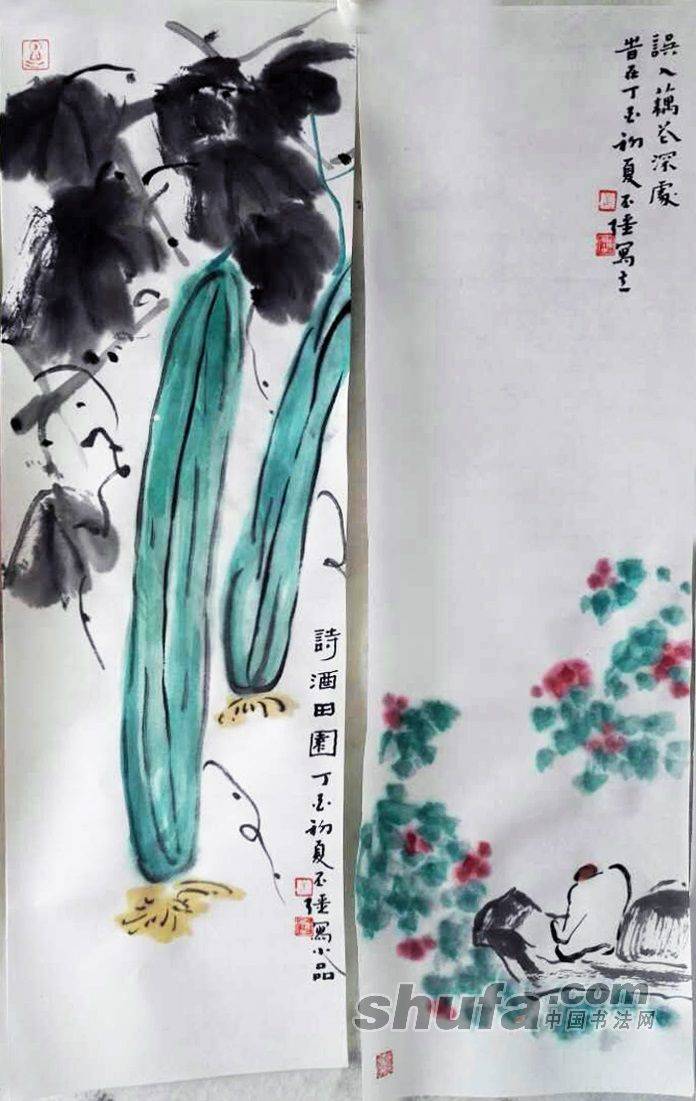 誤入藕花深處
丁酉初夏
寫
詩酒田園
丁酉初夏
寫小品
shufa.com
中国书法网